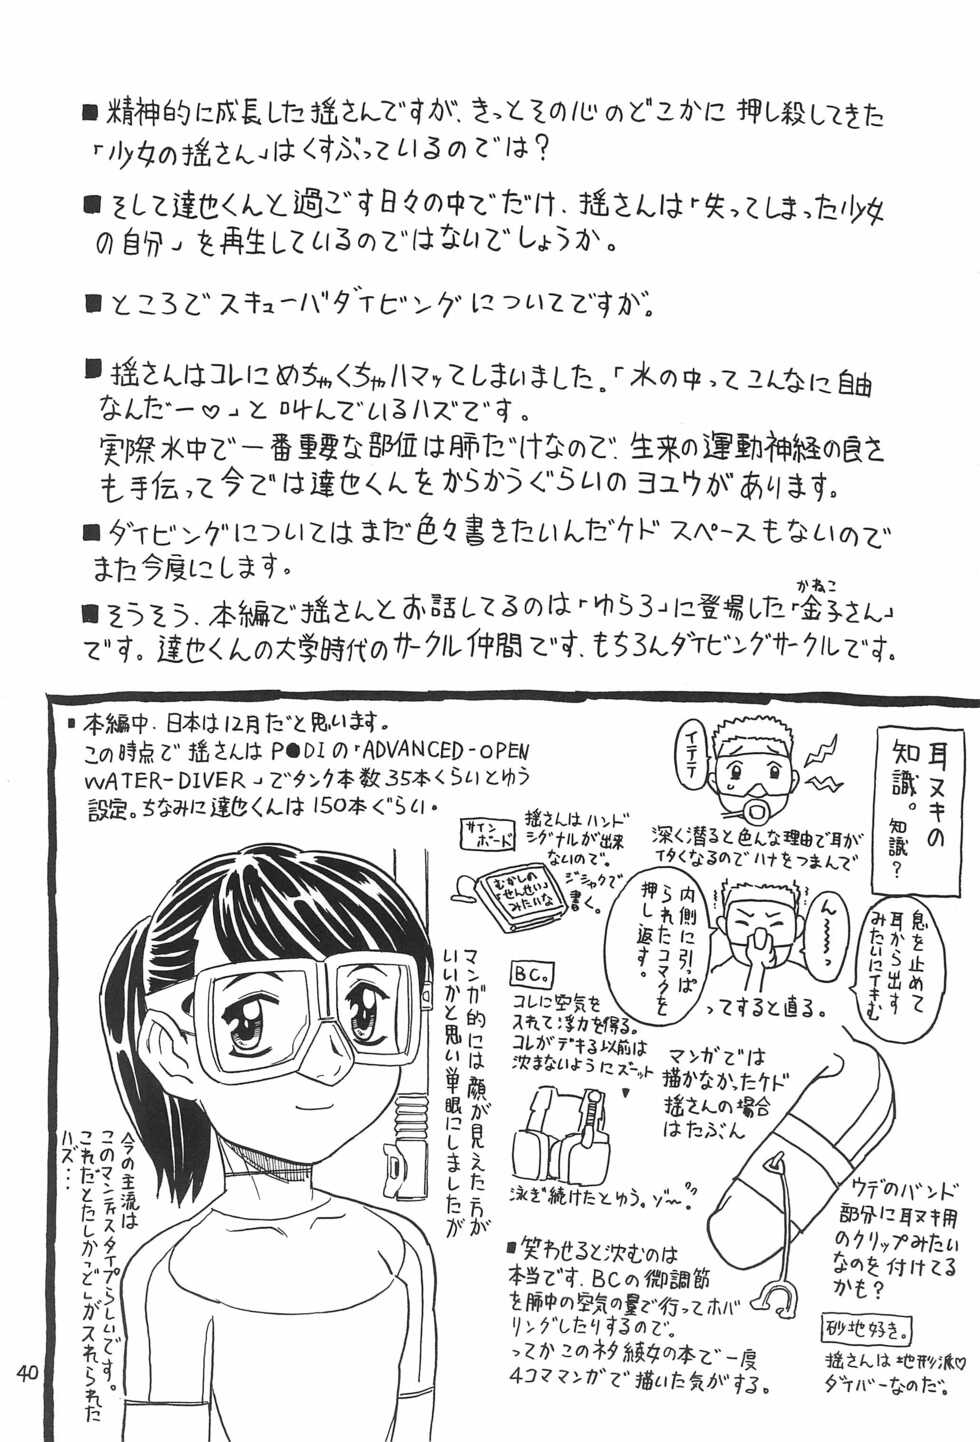 ■精神的に成長した揺さんですが、きっとその心のどこかに押し殺してきた
「少女の揺さん」はくすぶっているのでは？
■そして達也くんと過ごす日々の中でだけ、揺さんは「失ってしまった少女
の自分」を再生しているのではないでしょうか。
■ところでスキューバダイビングについてですが。
■揺さんはコレにめちゃくちゃハマッてしまいました。「水の中ってこんなに自由
なんだー♡」と叫んでいるハズです。
実際水中で一番重要な部位は肺だけなので、生来の運動神経の良さ
も手伝って今では達也くんをからかうぐらいのヨユウがあります。
■ダイビングについてはまだ色々書きたいんだケドスペースもないので
また今度にします。
■そうそう、本編で揺さんとお話してるのは「ゆらろ」に登場した「金子さん」
かねこ
です。達也くんの大学時代のサークル仲間です、もちろんダイビングサークルです。
■本編中、日本は12月だと思います。
この時点で揺さんはP●DIの「ADVANCED-OPEN
WATER-DIVER」でタンク本数35本くらいとゆう
設定。ちなみに達也くんは150本ぐらい・
耳ヌキの
知識。知識？
イテテ
深く潜ると色んな理由で耳が
イタくなるのでハナをつまんで
息を止めて
耳から出す
みたいにイキむ
ん〜〜〜っ
内側に引っぱ
られたコマクを
押し返す。
ってすると直る。
サイン
ボード
揺さんはハンド
シグナルが出来
ないので。
ジシャクで
書く。
むかしの
「せんせい」
みたいな
BC。
コレに空気を
入れて浮力を得る。
コレがデキる以前は
沈まないようにズーット
泳ぎ続けたとゆう。ゾ〜。
マンガでは
描かなかったケド
揺さんの場合
はたぶん
ウデのバンド
部分に耳ヌキ用
のクリップみたい
なのを付けてる
かも？
マンガ的には顔が見えた方が
いいかと思い単眼にしましたが
今の主流は
このマンティスタイプらしいです。
これだとたしか「ど」がスれられた
ハズ・・・
■笑わせると沈むのは
本当です、BCの微調節
を肺中の空気の量で行ってホバ
リングしたりするので。
ってかこのネタ綾女の本で一度
4コママンガで描いた気がする。
砂地好き。
揺さんは地形派♡
ダイバーなのだ。
40